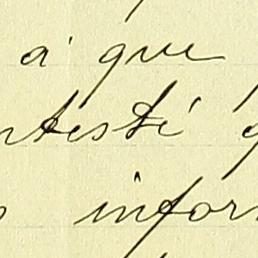 á que
ntesté q
s infor